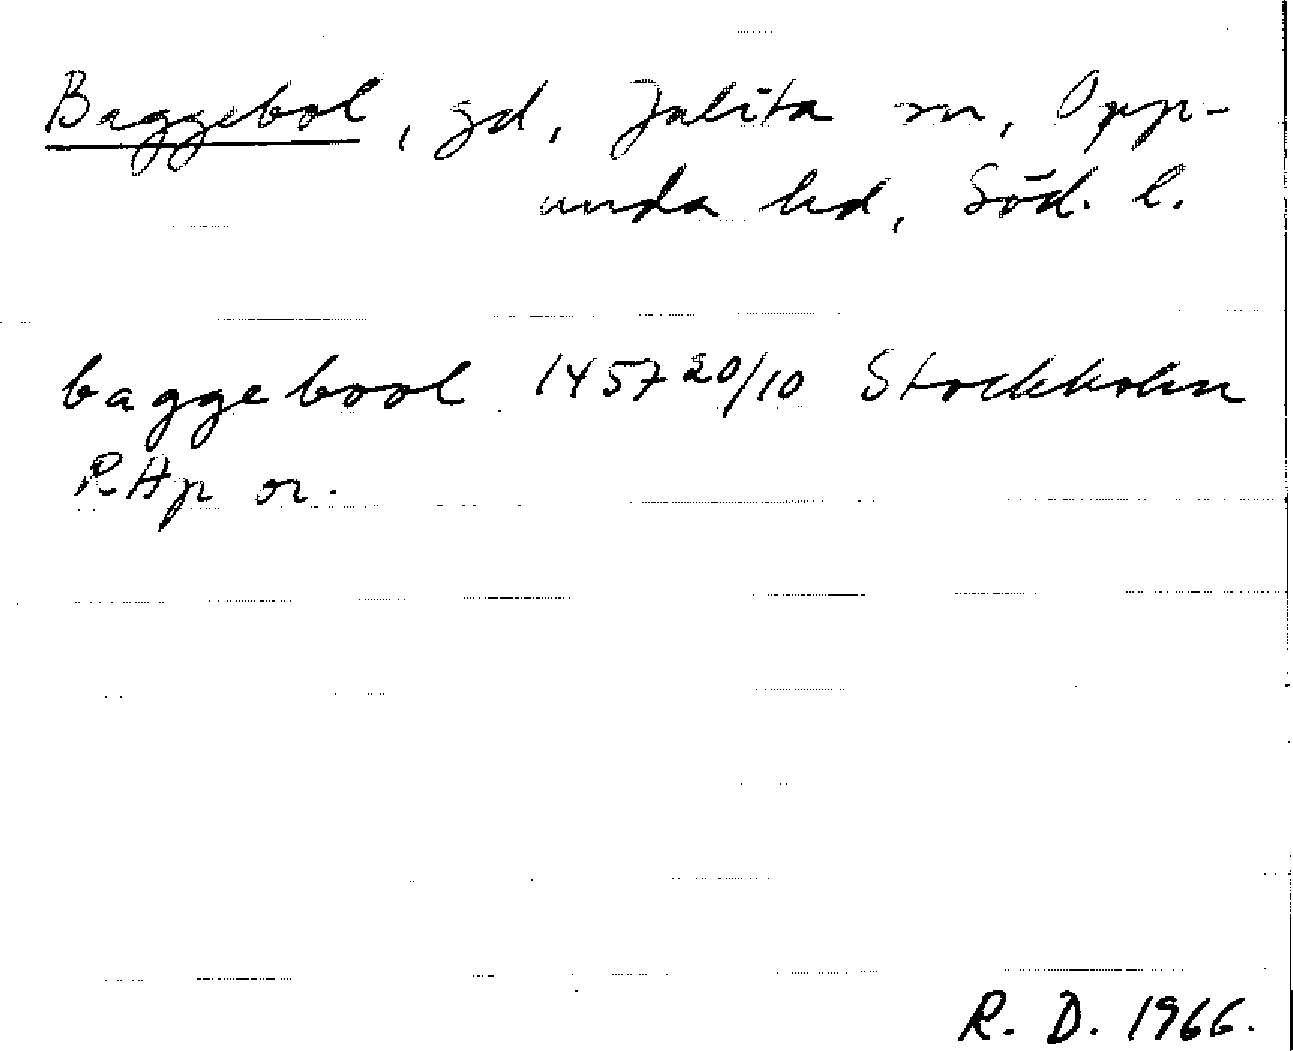 Baggebol, gd, Julita sn, Opp-
unda hd, Söd. l.
baggebool 1457 20/10 Stockholm
RAp or.
R. D. 1966.